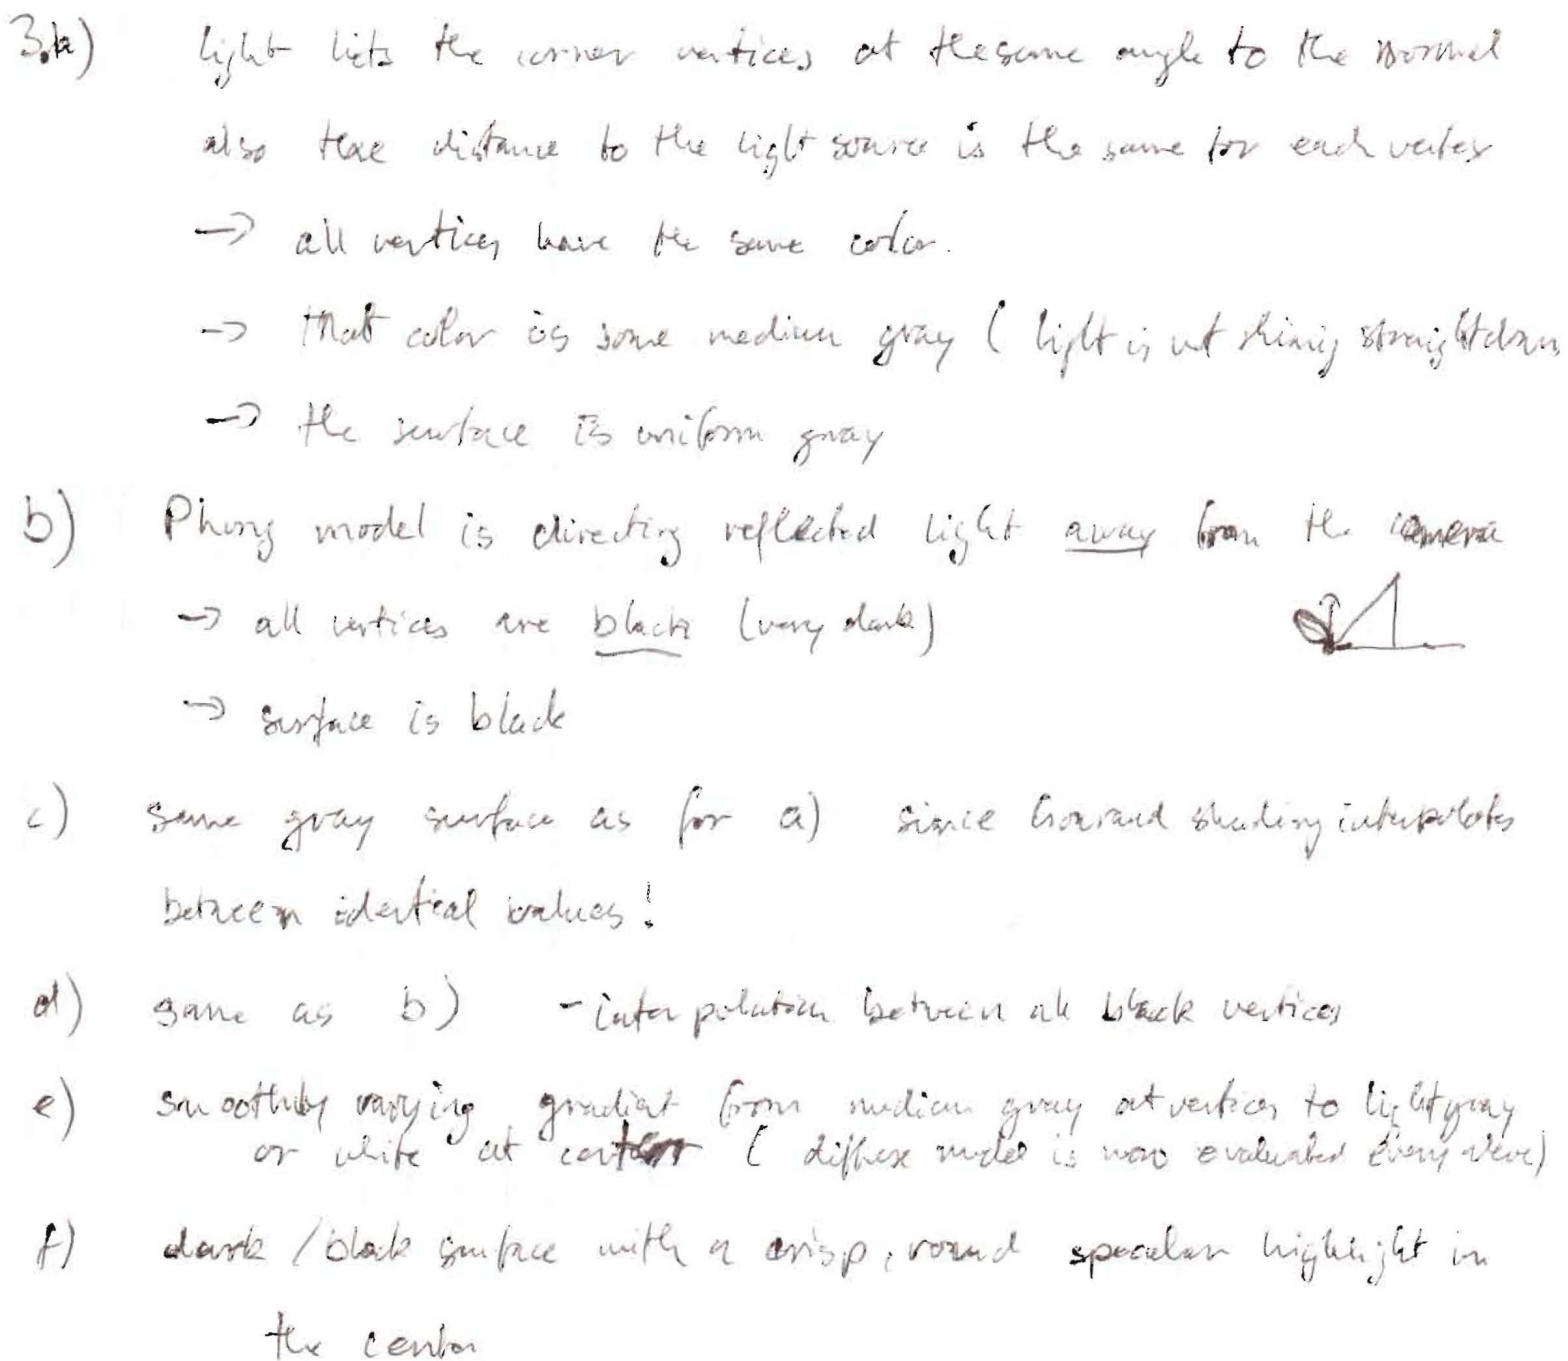 3.a) light hits the corner vertices at the same angle to the normal
also the distance to the light source is the same for each vertex
→ all vertices have the same color.
→ that color is some medium gray ( light is not shining straight down
→ the surface is uniform gray
b) Phong model is directing reflected light away from the camera
→ all vertices are black (very dark)
→ surface is black
c) same gray surface as for a) since Gouraud shading interpolates
between identical values!
d) same as b) - interpolation between all black vertices
e) smoothly varying gradient from medium gray at vertices to light gray
or white at center ( diffuse model is now evaluated everywhere)
f) dark / black surface with a crisp, round specular highlight in
the center